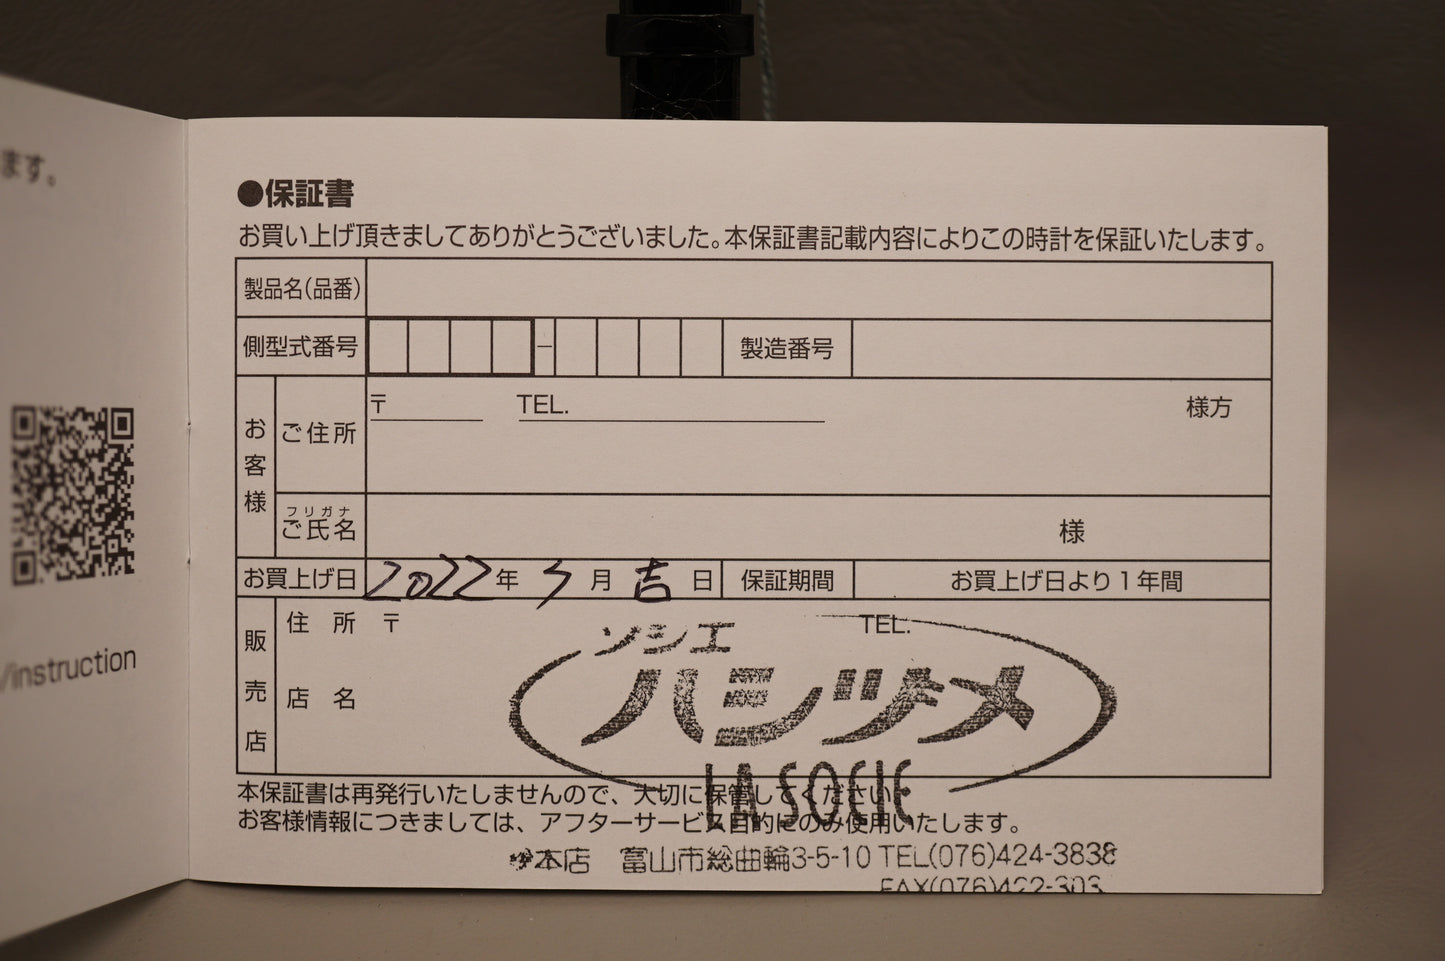 ます。
/instruction
●保証書
お買い上げ頂きましてありがとうございました。本保証書記載内容によりこの時計を保証いたします。
製品名(品番)
側型式番号 － 製造番号
お客様
ご住所 〒 TEL. 様方
フリガナ
ご氏名 様
お買上げ日 2022年 月 吉日 保証期間 お買上げ日より1年間
販売店
住所 〒 TEL.
店名
ソシエ
ハシヅメ
LA SOCIE
本保証書は再発行いたしませんので、大切に保管してください
お客様情報につきましては、アフターサービス目的にのみ使用いたします。
本店 富山市総曲輪3-5-10 TEL(076)424-3838
FAX(076)422-303